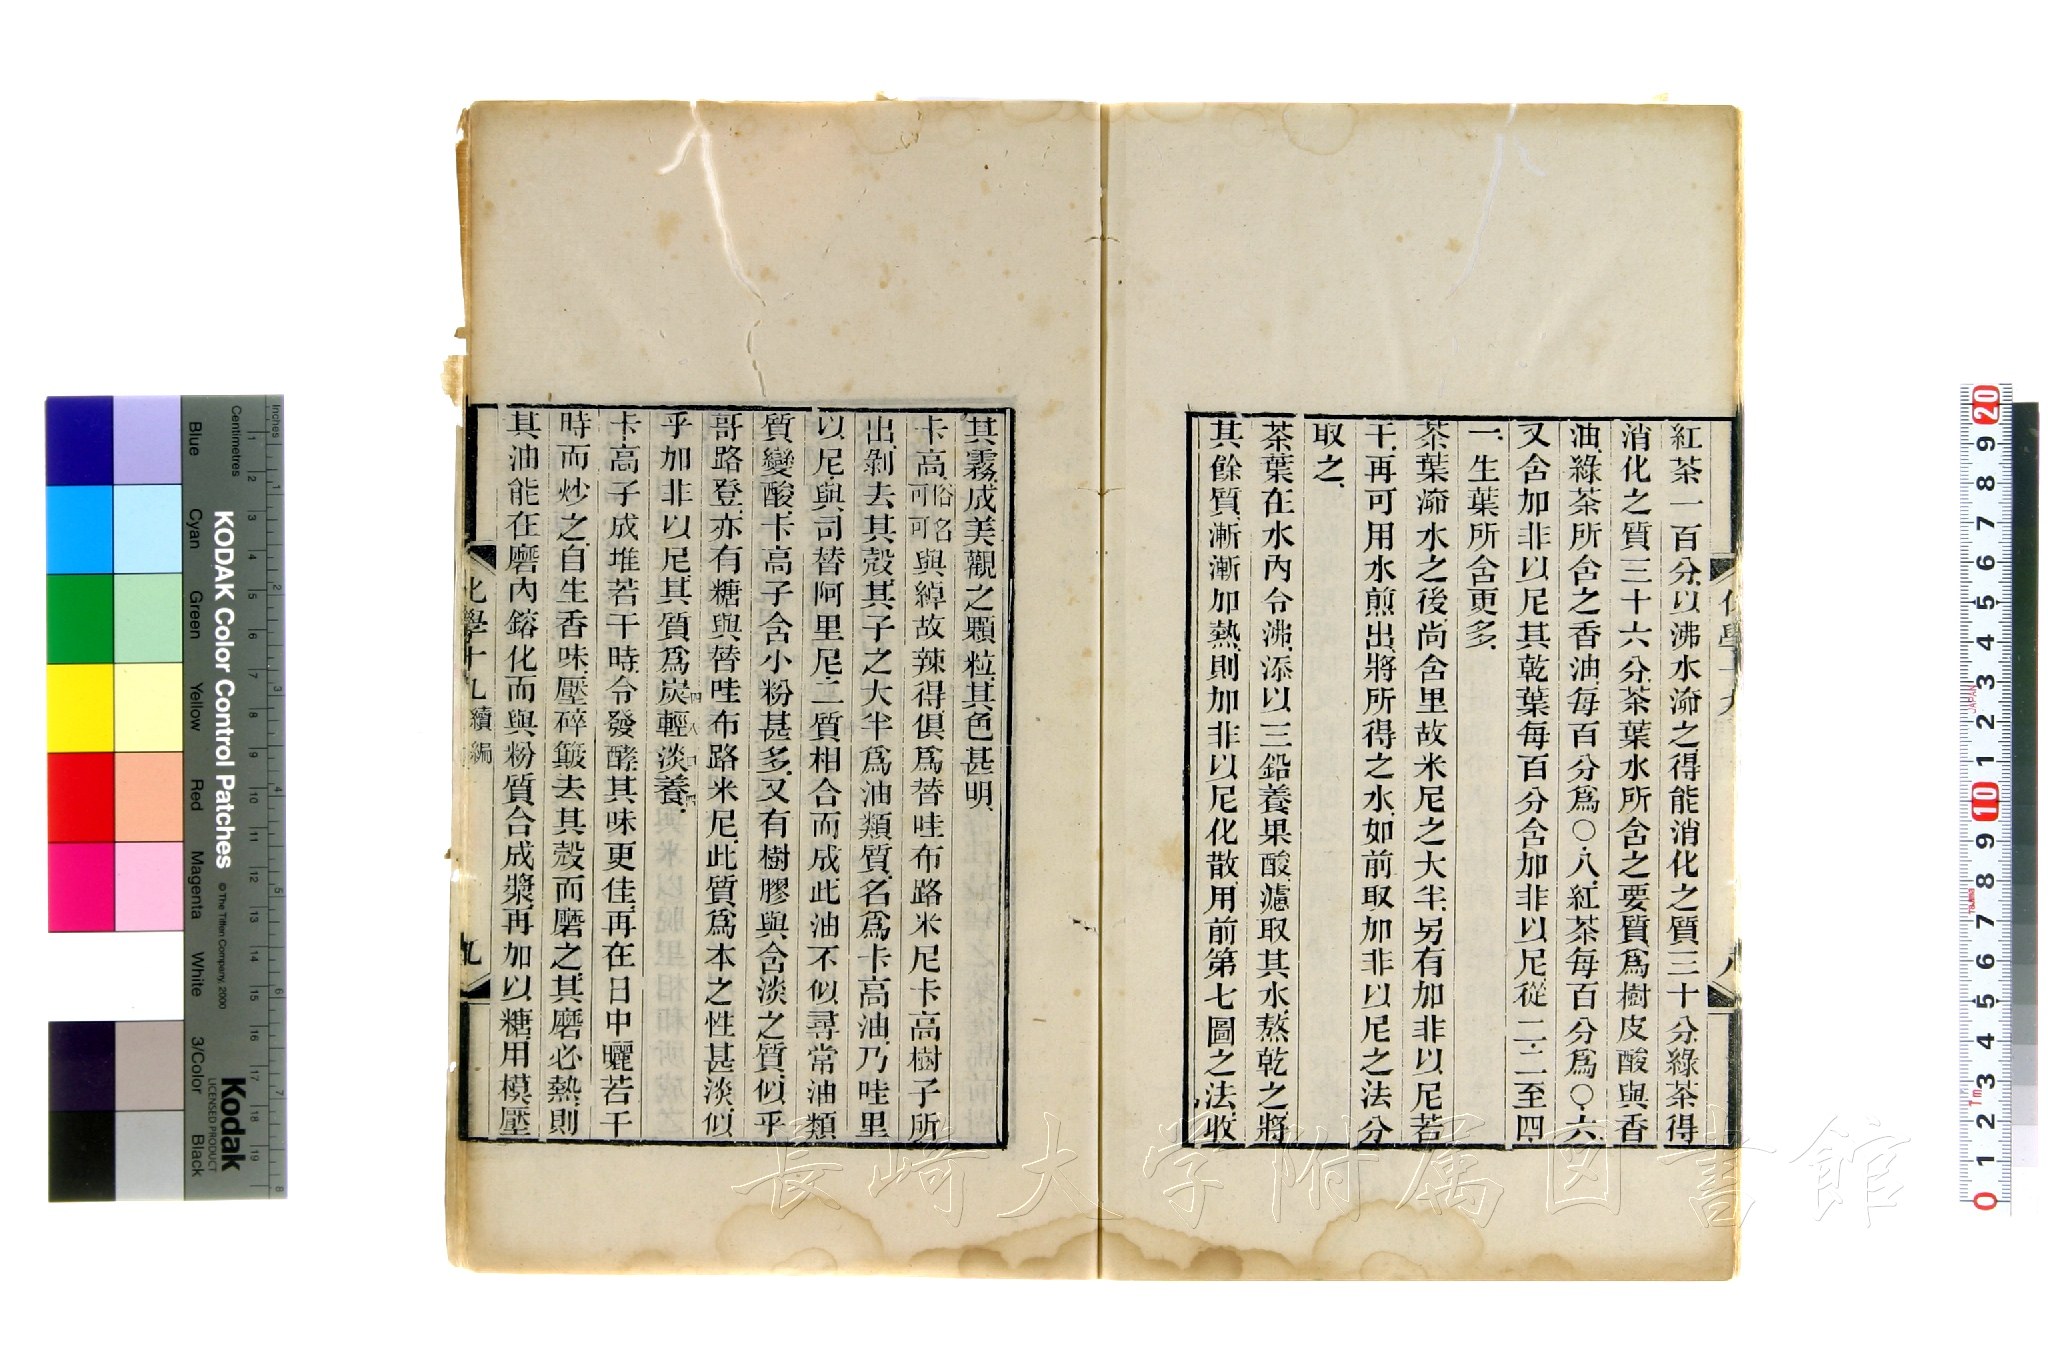 紅茶一百分以沸水淪之得能消化之質三十分綠茶得
消化之質三十六分茶葉水所含之要質爲樹皮酸與香
油綠茶所含之香油每百分爲〇·八紅茶每百分爲〇·六
又含加非以尼其乾葉每百分含加非以尼從二·二至四·
一生葉所含更多
茶葉淪水之後尚含里故米尼之大半另有加非以尼若
干再可用水煎出將所得之水如前取加非以尼之法分
取之
茶葉在水內令沸添以三鉛養果酸濾取其水熬乾之將
其餘質漸漸加熱則加非以尼化散用前第七圖之法收
化學十九
八
其霧成美觀之顆粒其色甚明
卡高俗名可可與綽故辣得俱爲替哇布路米尼卡高樹子所
出剝去其殼其子之大半爲油類質名爲卡高油乃哇里
以尼與司替阿里尼二質相合而成此油不似尋常油類
質變酸卡高子含小粉甚多又有樹膠與含淡之質似乎
哥路登亦有糖與替哇布路米尼此質爲本之性甚淡似
乎加非以尼其質爲炭輕淡養
卡高子成堆若干時令發酵其味更佳再在日中曬若干
時而炒之自生香味壓碎簸去其殼而磨之其磨必熱則
其油能在磨內鎔化而與粉質合成漿再加以糖用模壓
化學十九 續編
九
KODAK Color Control Patches
©The Tiffen Company, 2000
Kodak
LICENSED PRODUCT
Inches
Centimetres
Blue
Cyan
Green
Yellow
Red
Magenta
White
3/Color
Black
長崎大学附属図書館